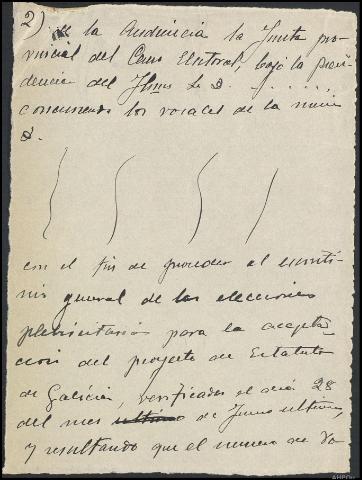 2)
de la Audiencia la Junta pro-
vincial del Censo Electoral, bajo la presi-
dencia del Ilmo Sr D. . . . . . ,
concurriendo los vocales de la misma
D.
con el fin de proceder al escruti-
nio general de las elecciones
plebiscitarias para la acepta-
cion del proyecto de Estatuto
de Galicia, verificadas el dia 28
del mes ultimo de Junio ultimo,
y resultando que el numero de vo-
AHPOu